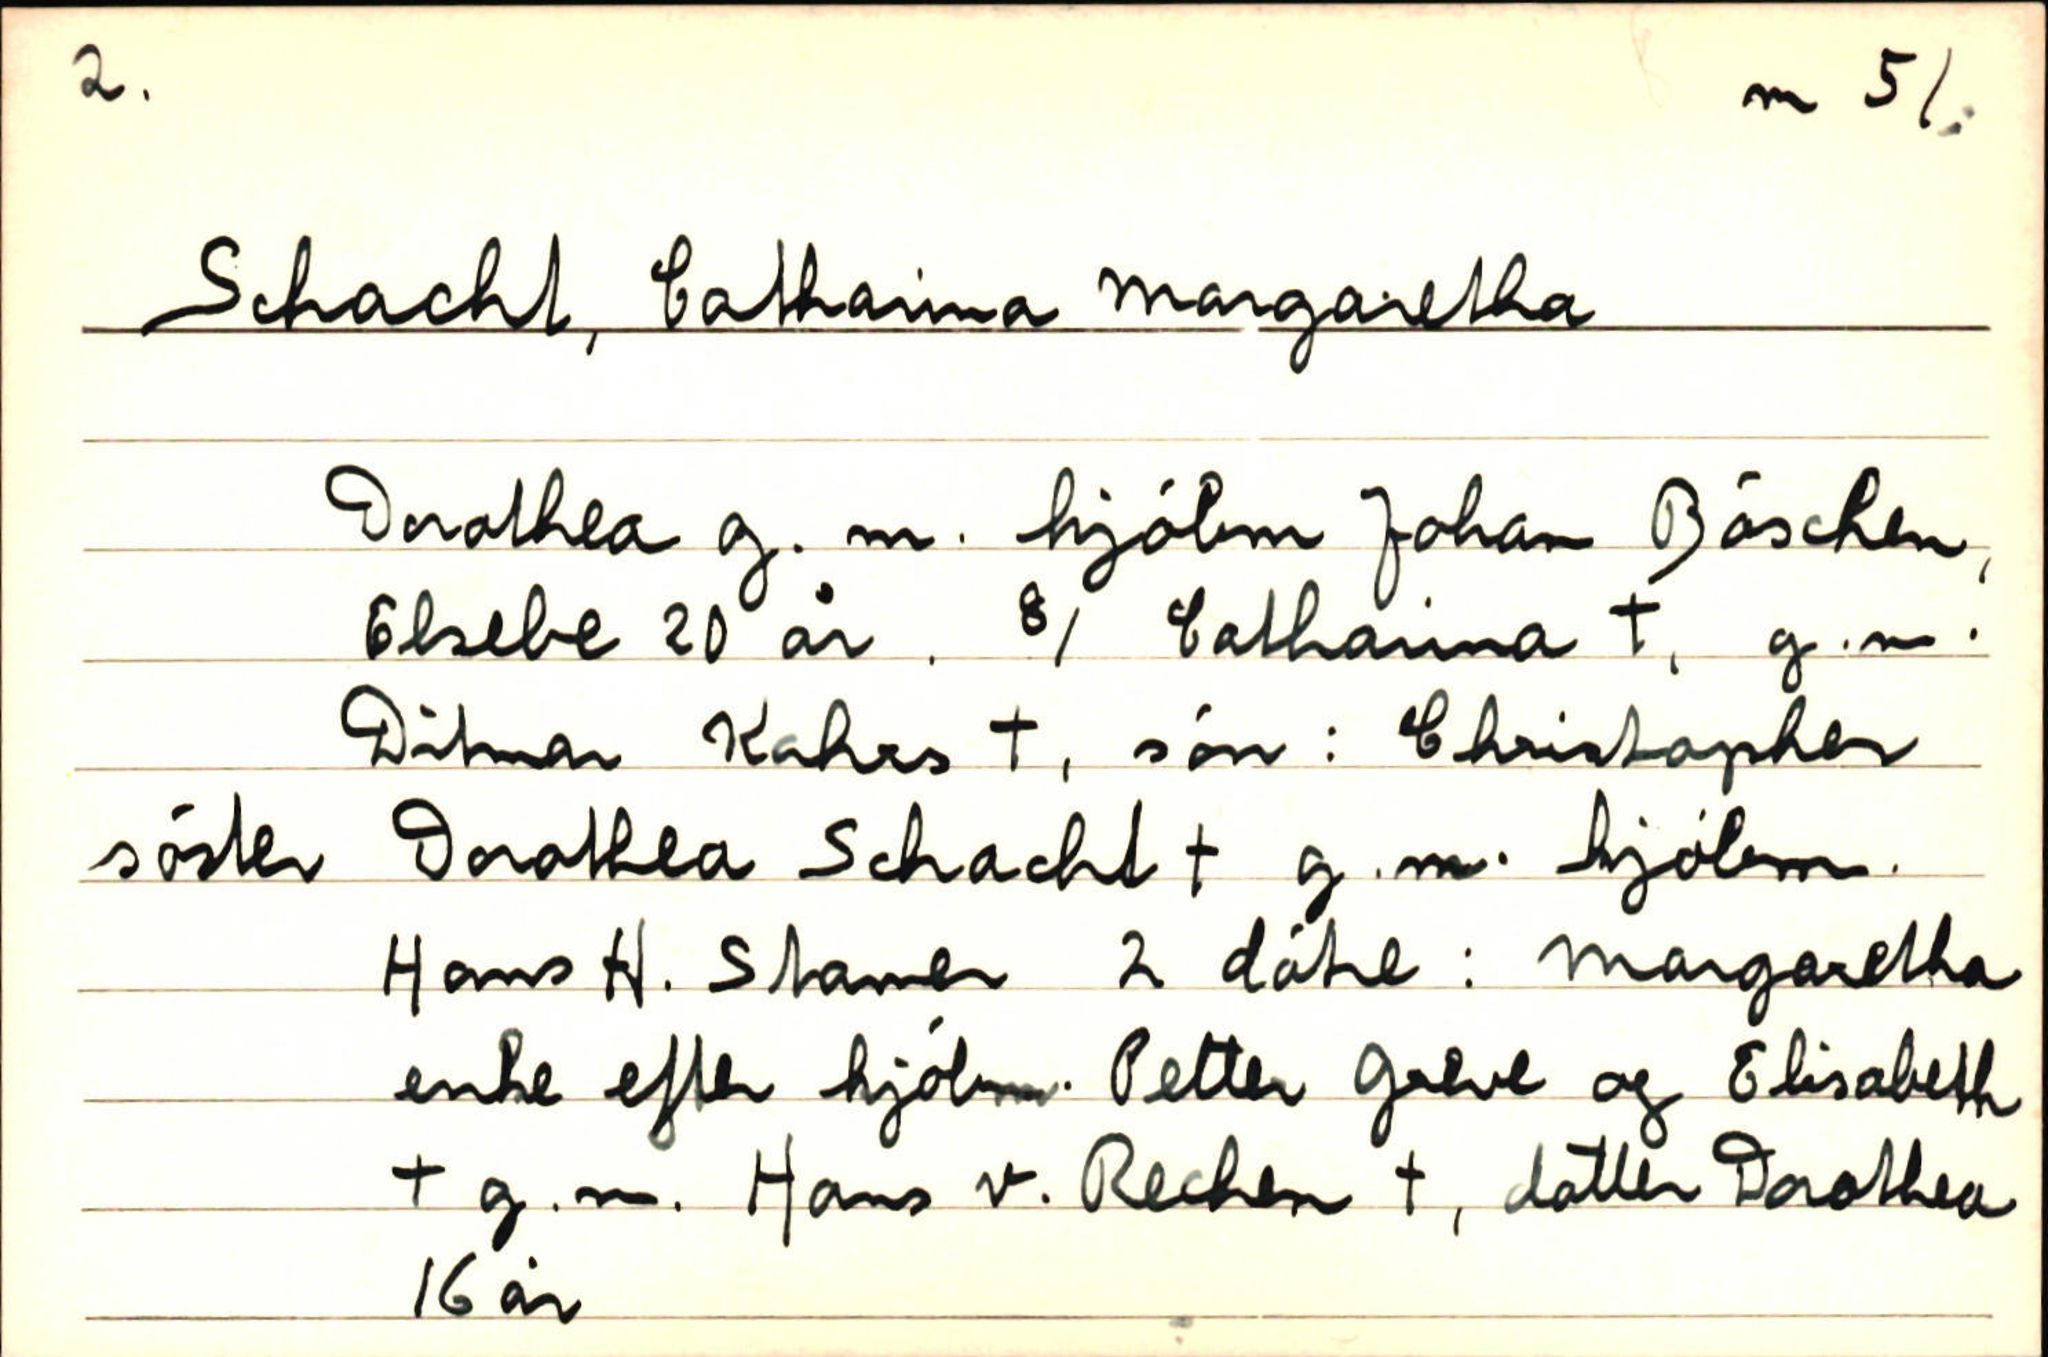 2.
m 5/.
Schacht, Catharina Margaretha
Dorothea g. m. hjólm Johan Böschen,
Elsebe 20 år. 8/ Catharina †, g.m.
Ditmar Kahrs †, són : Christopher
sóster Dorothea Schacht † g.m. hjólm.
Hans H. Stamer 2 dótre : Margaretha
enke efter hjólm. Petter Greve og Elisabeth
† g.m. Hans v. Rechen †, datter Dorothea
16 år